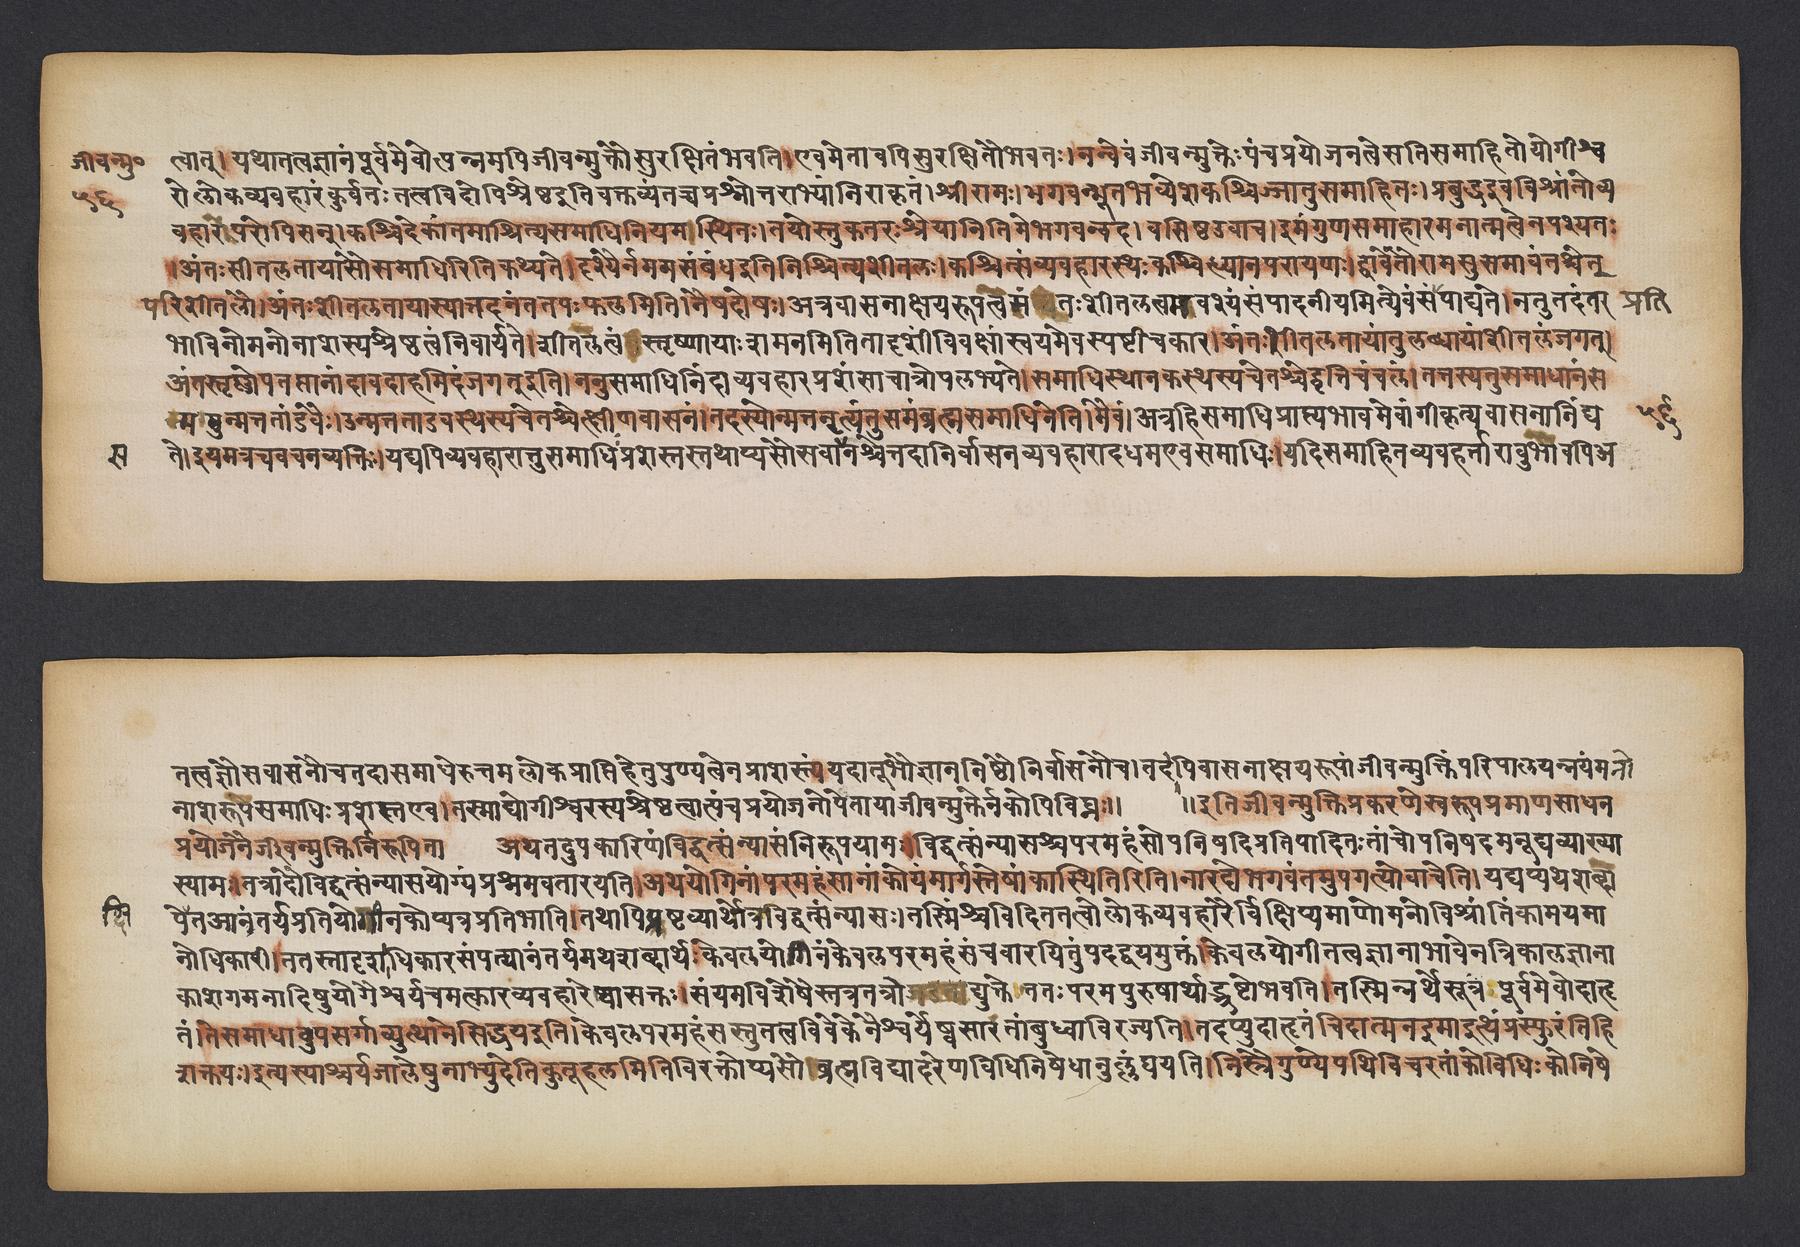 जीवन्मु० त्वात्। यथातत्वज्ञानंपूर्वमेवोत्पन्नमपिजीवन्मुक्तौसुरक्षितंभवति।एवमेतावपिसुरक्षितौभवतः।नन्वेवंजीवन्मुक्तेःपंचप्रयोजनत्वेसतिसमाहितोयोगीश्व
५६ रोलोकव्यवहारंकुर्वतःतत्वविदोपिश्रेष्ठइतिवक्तव्यंतच्चप्रश्नोत्तराभ्यांनिराकृतं।श्रीरामः।भगवन्भूतभव्येशकश्चिज्जातुसमाहितः।प्रबुद्धइवविश्रांतोव्य
वहारपरोपिसन्।कश्चिदेकांतमाश्रित्यसमाधिनियमास्थितः।तयोस्तुकतरःश्रेयानितिमेभगवन्वद।वसिष्ठउवाच।इमंगुणसमाहारमनात्मत्वेनपश्यतः
।अंतःसीतलतायासौसमाधिरितिकथ्यते।दृश्यैर्नममसंबंधइतिनिश्चित्यशीतलः।कश्चित्संव्यवहारस्थःकश्चिद्ध्यानपरायणः।द्वावेतौरामसुसमावंतश्चेत्
परिशीतलौ।अंतःशीतलतायास्यात्तदनंततपःफलमिति।नैषदोषः।अत्रवासनाक्षयरूपत्वसं तःशीतलत्वमवश्यंसंपादनीयमित्येवंसंपाद्यते।नतुतदंतर प्रति
भाविनोमनोनाशस्यश्रेष्ठत्वंनिवार्यते।शीतलत्वं स्तृष्णायाःशमनमितितादृशींविवक्षांस्वयमेवस्पष्टीचकार।अंतःशीतलतायांतुलब्धायांशीतलंजगत्।
अंतस्तृष्णोपतप्तानांदावदाहमिदंजगत्इति।ननुसमाधिनिंदाव्यवहारप्रशंसाचात्रोपलभ्यते।समाधिस्थानकस्थस्यचेतश्चेद्वृत्तिचंचलं।तत्तस्यतुसमाधानंस
ममुन्मत्ततांडवैः।उन्मत्ततांडवस्थस्यचेतश्चेत्क्षीणवासनं।तदस्योन्मत्तनृत्यंतुसमंब्रह्मसमाधिनेति।मैवं।अत्रहिसमाधिप्राशस्त्यभावमेवांगीकृत्यवासनानिंद्य ५६
स ते।इयमत्रचवचनव्यक्तिः।यद्यपिव्यवहारात्तुसमाधिप्रशस्तस्तथाप्यसौसवासनश्चेत्तदानिर्वासनव्यवहारादधमएवसमाधिः।यदिसमाहितव्यवहर्तारावुभावपिअ
तत्वज्ञौसवासनौचतदासमाधेरुत्तमलोकप्राप्तिहेतुपुण्यत्वेनप्राशस्त्यंयदातूभौज्ञाननिष्ठौनिर्वासनौच।तदपिवासनाक्षयरूपांजीवन्मुक्तिंपरिपालयन्नयंमनो
नाशरूपसमाधिःप्रशस्तएव।तस्माद्योगीश्वरस्यश्रेष्ठत्वात्पंचप्रयोजनोपेतायाजीवन्मुक्तेर्नकोपिविघ्नः।। ।।इतिजीवन्मुक्तिप्रकरणेस्वरूपप्रमाणसाधन
प्रयोजनैजीवन्मुक्तिर्निरूपिता अथतदुपकारिणंविद्वत्संन्यासंनिरूपयामः।विद्वत्संन्यासश्चपरमहंसोपनिषदिप्रतिपादितःतांचोपनिषदमनूद्यव्याख्या
स्यामः।तत्रादौविद्वत्संन्यासयोग्यंप्रश्नमवतारयति।अथयोगिनांपरमहंसानांकोयंमार्गस्तेषांकास्थितिरिति।नारदोभगवंतमुपगत्योवाचेति।यद्यप्यथशब्दा
पेतआनंतर्यप्रतियोगीनकोप्यत्रप्रतिभाति।तथापिप्रष्टव्यार्थोत्रविद्वत्संन्यासः।तस्मिंश्चविदिततत्वोलोकव्यवहारैर्विक्षिप्यमाणोमनोविश्रांतिंकामयमा
नोधिकारी।ततस्तादृशाधिकारसंपत्यानंतर्यमथशब्दार्थः।केवलयोगिनंकेवलपरमहंसंचवारयितुंपदद्वयमुक्तं।केवलयोगीतत्वज्ञानाभावेनत्रिकालज्ञाना
काशगमनादिषुयोगैश्वर्यचमत्कारव्यवहारेष्वासक्तः।संयमविशेषैस्तत्रतत्रो द्युक्ते ततःपरमपुरुषार्थाद्भ्रष्टोभवति।तस्मिन्नर्थेसूत्रं पूर्वमेवोदाहृ
तं।तेसमाधावुपसर्गाव्युत्थानेसिद्धयइति।केवलपरमहंसस्तुतत्वविवेकेनैश्वर्येष्वसारतांबुध्वाविरज्यति।तदप्युदाहृतंचिदात्मनइमाइत्थंप्रस्फुरंतिहि
शक्तयः।इत्यस्याश्चर्यजालेषुनाभ्युदेतिकुतूहलमितिविरक्तोप्यसौब्रह्मविद्यादरेणविधिनिषेधानुल्लंघयति।निस्त्रैगुण्येपथिविचरतांकोविधिःकोनिषे